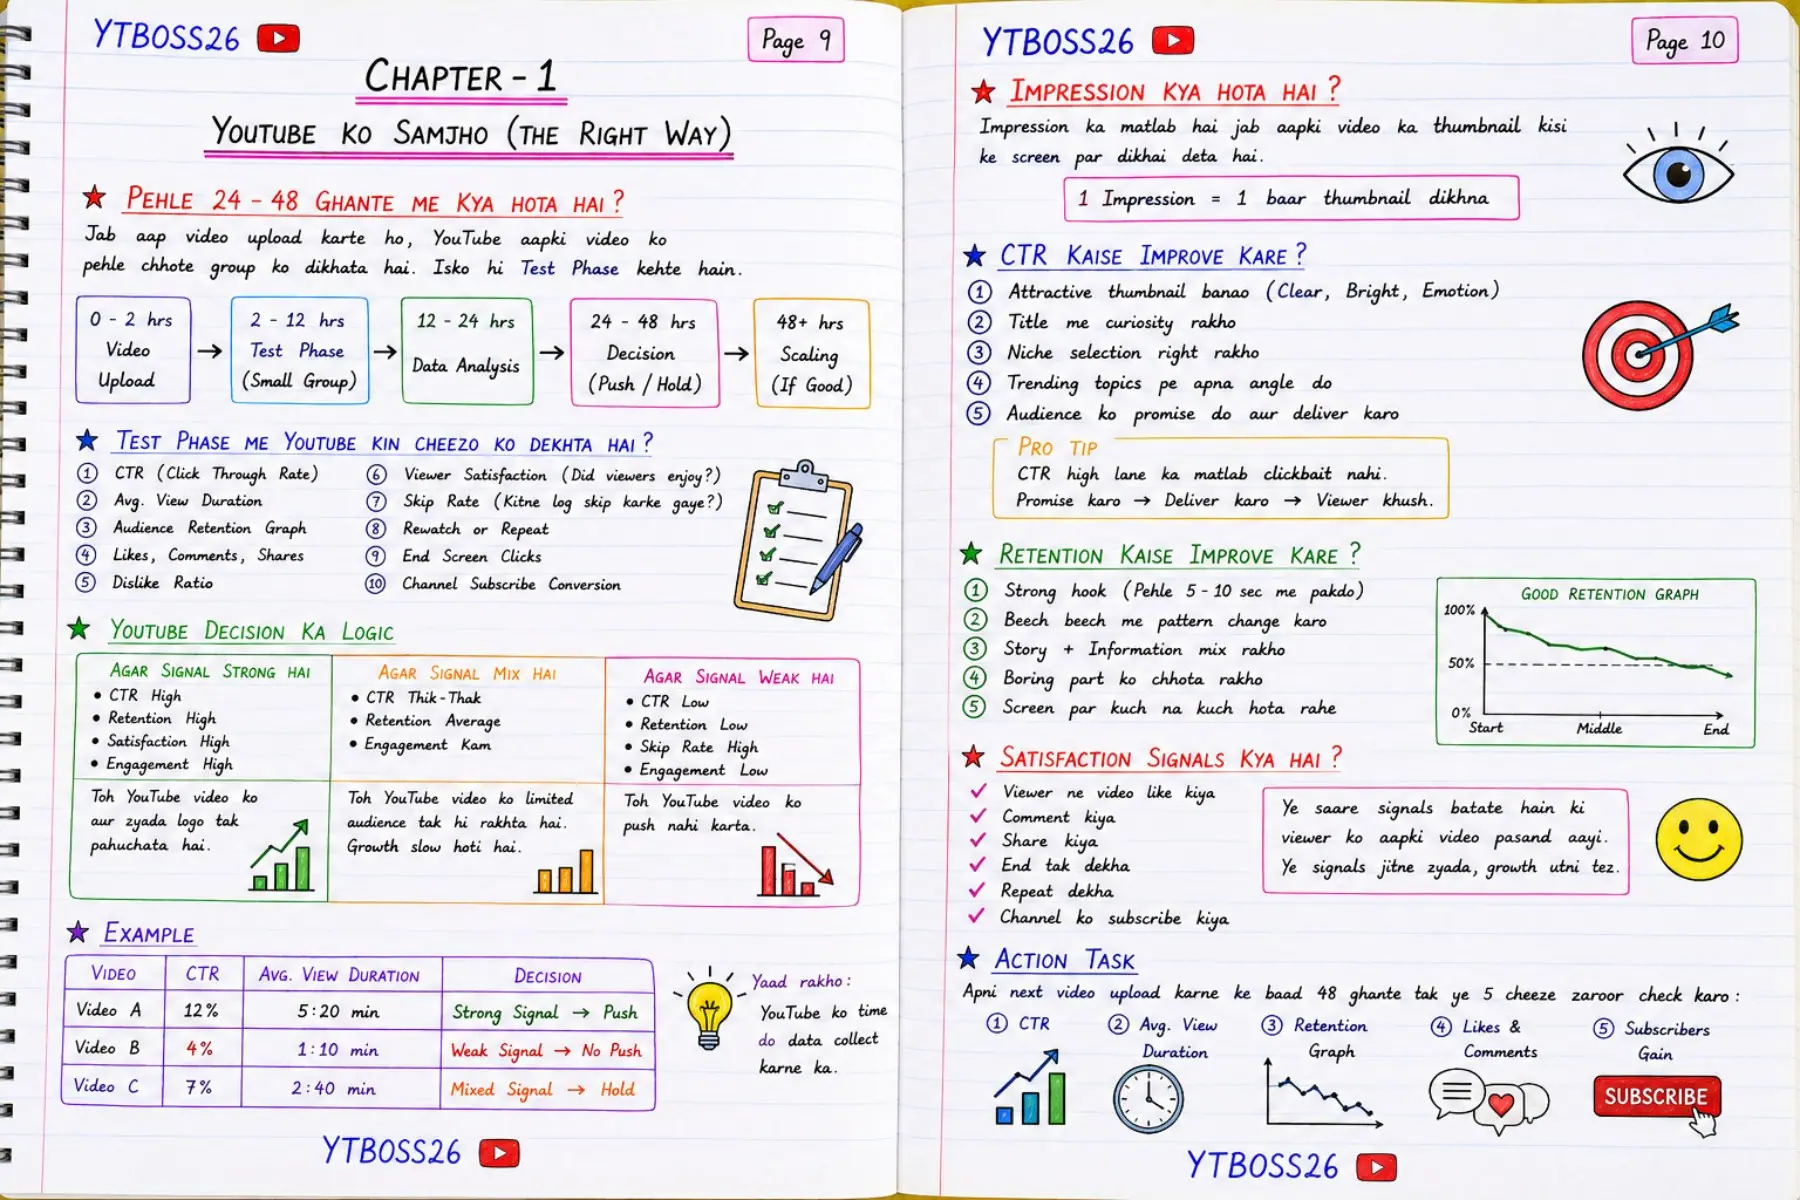 YTBOSS26
Page 9
CHAPTER - 1
YOUTUBE KO SAMJHO (THE RIGHT WAY)
PEHLE 24 - 48 GHANTE ME KYA HOTA HAI ?
Jab aap video upload karte ho, YouTube aapki video ko
pehle chhote group ko dikhata hai. Isko hi Test Phase kehte hain.
0 - 2 hrs
Video
Upload
2 - 12 hrs
Test Phase
(Small Group)
12 - 24 hrs
Data Analysis
24 - 48 hrs
Decision
(Push / Hold)
48+ hrs
Scaling
(If Good)
TEST PHASE ME YOUTUBE KIN CHEEZO KO DEKHTA HAI ?
1 CTR (Click Through Rate)
2 Avg. View Duration
3 Audience Retention Graph
4 Likes, Comments, Shares
5 Dislike Ratio
6 Viewer Satisfaction (Did viewers enjoy?)
7 Skip Rate (Kitne log skip karke gaye?)
8 Rewatch or Repeat
9 End Screen Clicks
10 Channel Subscribe Conversion
YOUTUBE DECISION KA LOGIC
AGAR SIGNAL STRONG HAI
• CTR High
• Retention High
• Satisfaction High
• Engagement High
Toh YouTube video ko
aur zyada logo tak
pahuchata hai.
AGAR SIGNAL MIX HAI
• CTR Thik-Thak
• Retention Average
• Engagement Kam
Toh YouTube video ko limited
audience tak hi rakhta hai.
Growth slow hoti hai.
AGAR SIGNAL WEAK HAI
• CTR Low
• Retention Low
• Skip Rate High
• Engagement Low
Toh YouTube video ko
push nahi karta.
EXAMPLE
VIDEO CTR AVG. VIEW DURATION DECISION
Video A 12% 5:20 min Strong Signal → Push
Video B 4% 1:10 min Weak Signal → No Push
Video C 7% 2:40 min Mixed Signal → Hold
Yaad rakho:
YouTube ko time
do data collect
karne ka.
YTBOSS26
YTBOSS26
Page 10
IMPRESSION KYA HOTA HAI ?
Impression ka matlab hai jab aapki video ka thumbnail kisi
ke screen par dikhai deta hai.
1 Impression = 1 baar thumbnail dikhna
CTR KAISE IMPROVE KARE ?
1 Attractive thumbnail banao (Clear, Bright, Emotion)
2 Title me curiosity rakho
3 Niche selection right rakho
4 Trending topics pe apna angle do
5 Audience ko promise do aur deliver karo
PRO TIP
CTR high lane ka matlab clickbait nahi.
Promise karo → Deliver karo → Viewer khush.
RETENTION KAISE IMPROVE KARE ?
1 Strong hook (Pehle 5 - 10 sec me pakdo)
2 Beech beech me pattern change karo
3 Story + Information mix rakho
4 Boring part ko chhota rakho
5 Screen par kuch na kuch hota rahe
GOOD RETENTION GRAPH
100%
50%
0%
Start Middle End
SATISFACTION SIGNALS KYA HAI ?
✓ Viewer ne video like kiya
✓ Comment kiya
✓ Share kiya
✓ End tak dekha
✓ Repeat dekha
✓ Channel ko subscribe kiya
Ye saare signals batate hain ki
viewer ko aapki video pasand aayi.
Ye signals jitne zyada, growth utni tez.
ACTION TASK
Apni next video upload karne ke baad 48 ghante tak ye 5 cheeze zaroor check karo :
1 CTR
2 Avg. View
Duration
3 Retention
Graph
4 Likes &
Comments
5 Subscribers
Gain
SUBSCRIBE
YTBOSS26